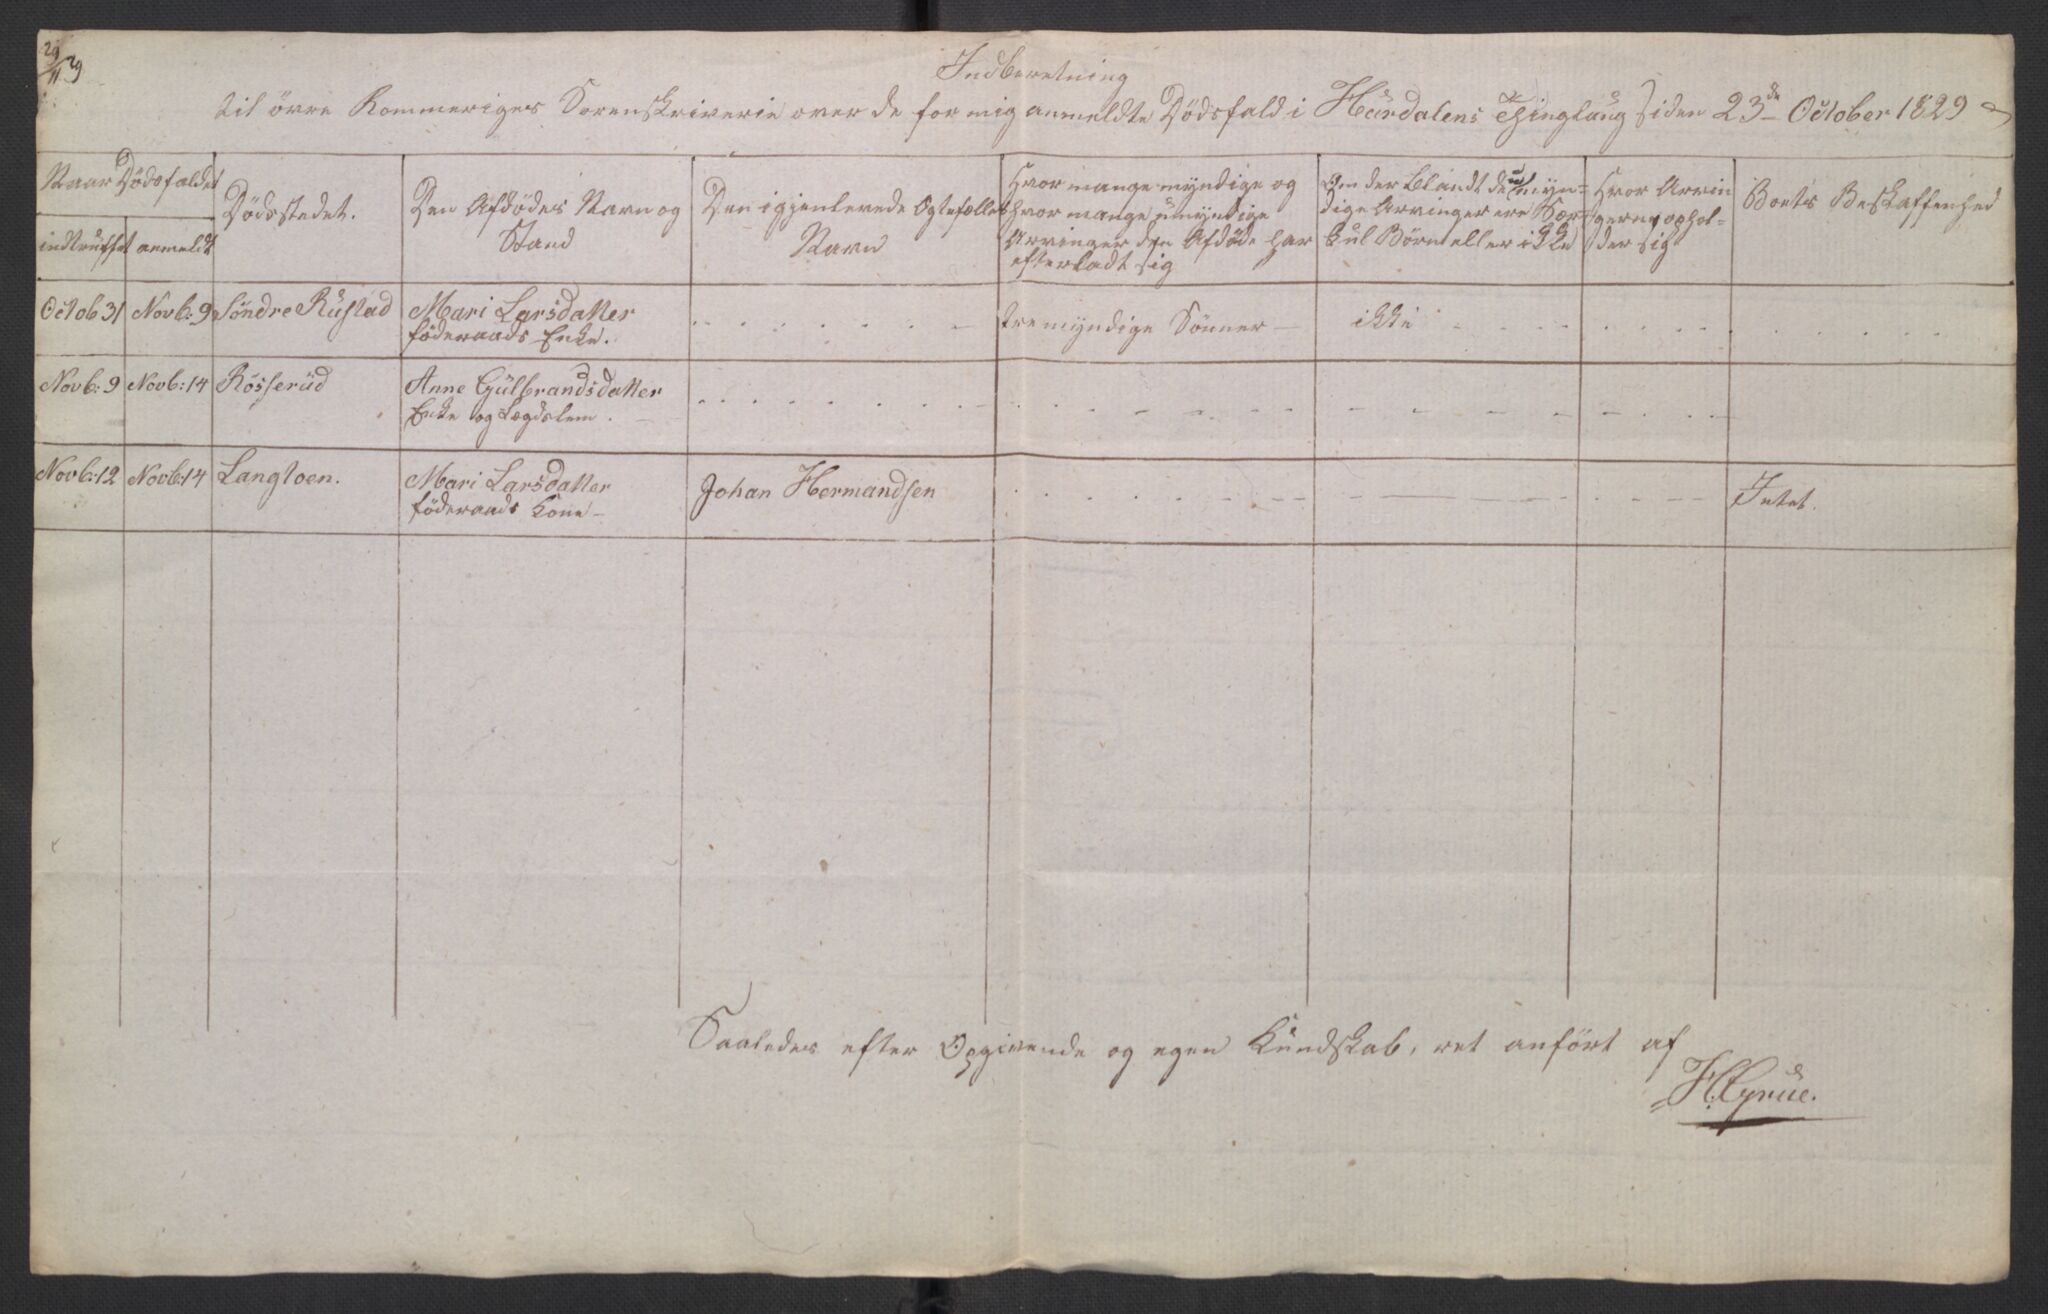 29/11 29
Indberetning
til övre Rommeriges Sorenskriverie over de for mig anmeldte Dödsfald i Hurdalens Thinglaug siden 23de October 1829
Naar Dödsfaldet
indtruffet
anmeldt
Dödsstedet.
Den Afdödes Navn og
Stand
Den igjenlevende Ægtefælles
Navn
Hvor mange myndige og
hvor mange umyndige
Arvinger den Afdöde har
efterladt sig
Om der blandt de umyn-
dige Arvinger ere Sær-
kul Börn eller ikke
Hvor Arvin
gerne ophol-
der sig
Boets Beskaffenhed
Octob 31
Novb: 9
Söndre Rustad
Mari Larsdatter
föderaads Enke.
tre myndige Sönner
ikke
Novb: 9
Novb: 14
Rösserud
Anne Gulbrandsdatter
Enke og Lægdslem.
Novb: 12
Novb: 14
Langtoen.
Mari Larsdatter
föderaads Kone
Johan Hermandsen
Intet.
Saaledes efter Opgivende og egen Kundskab, ret anfört af
H. Grue.